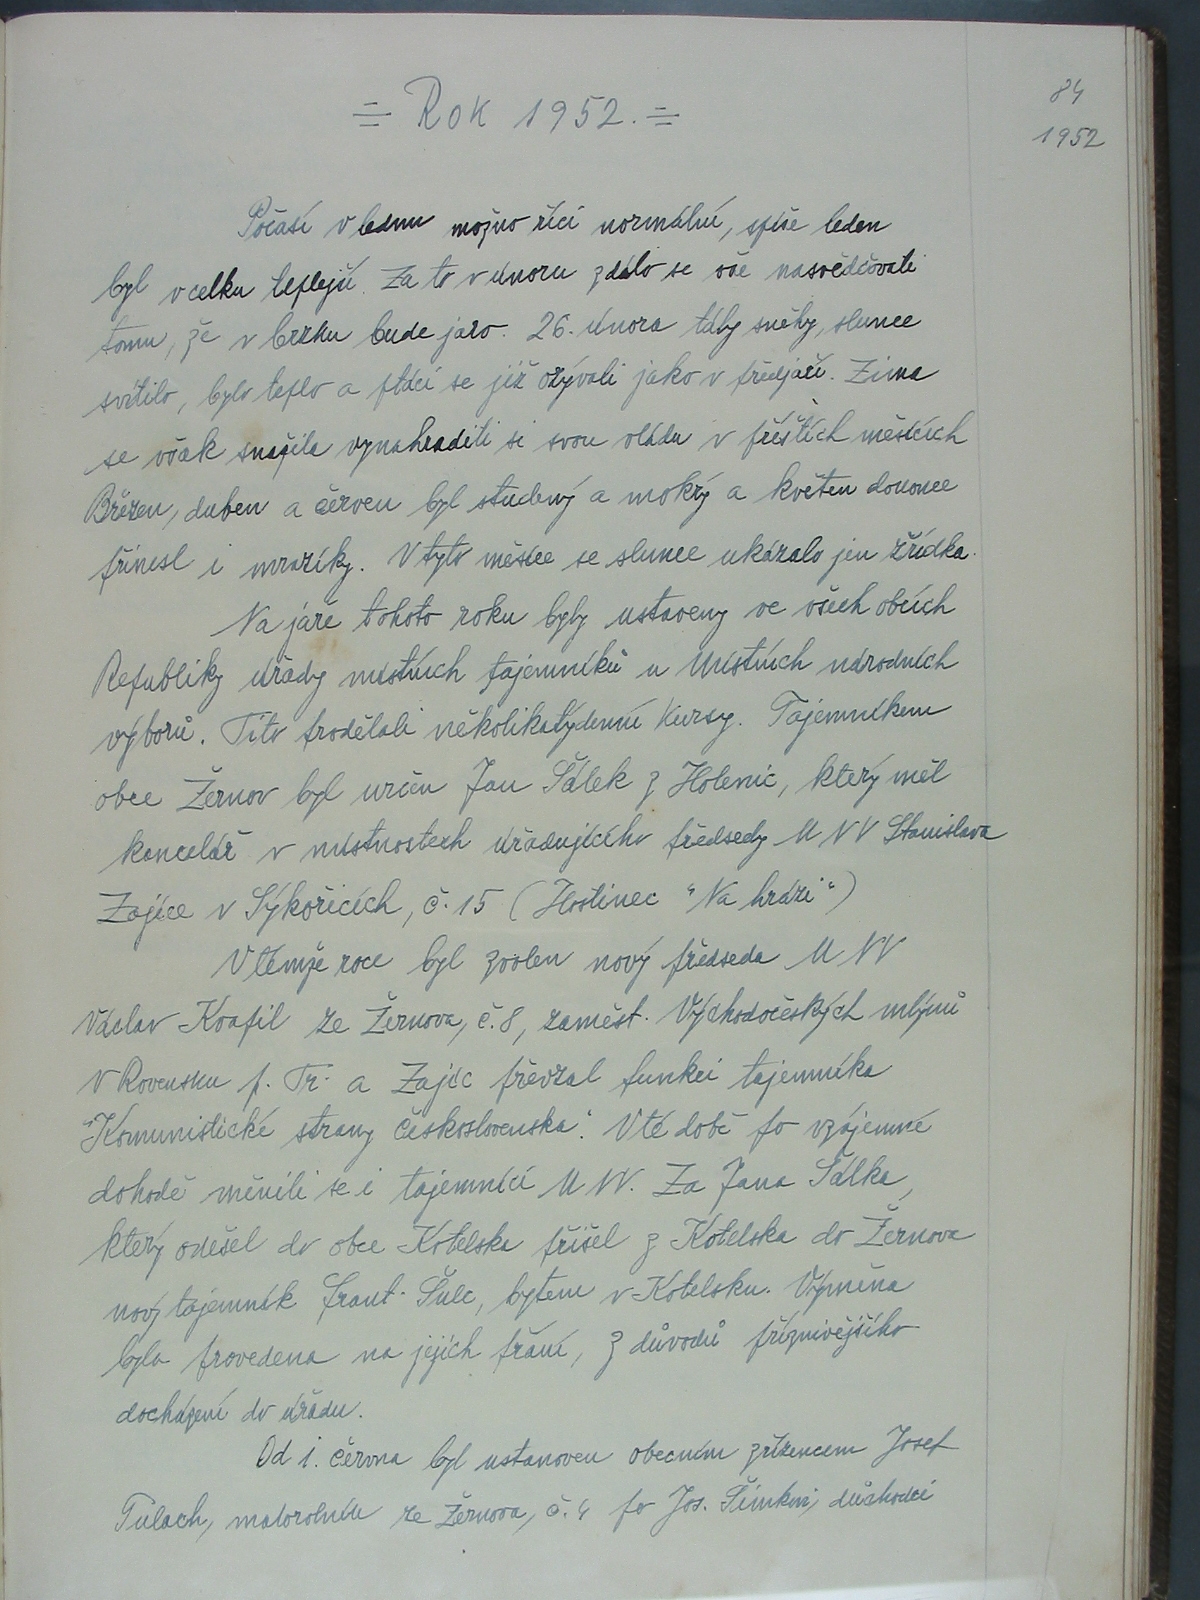 = Rok 1952. =
84
1952
Počasí v lednu možno říci normální, spíše leden
byl vcelku teplejší. Za to v únoru zdálo se vše nasvědčovati
tomu, že v brzku bude jaro. 26. února tály sněhy, slunce
svítilo, bylo teplo a ptáci se již ozývali jako v předjaří. Zima
se však snažila vynahraditi si svou vládu v příštích měsících
Březen, duben a červen byl studený a mokrý a květen dokonce
přinesl i mrazíky. V tyto měsíce se slunce ukázalo jen zřídka.
Na jaře tohoto roku byly ustaveny ve všech obcích
Republiky úřady místních tajemníků u Místních národních
výborů. Tito prodělali několikatýdenní kursy. Tajemníkem
obce Žernov byl určen Jan Šálek z Holenic, který měl
kancelář v místnostech úřadujícího předsedy MNV Stanislava
Zajíce v Sýkořicích, č. 15 (Hostinec "Na hrázi")
V témže roce byl zvolen nový předseda MNV
Václav Kvapil ze Žernova, č. 8, zaměst. Východočeských mlýnů
v Rovensku p. Tr. a Zajíc převzal funkci tajemníka
"Komunistické strany československa". V té době po vzájemné
dohodě měnili se i tajemníci MNV. Za Jana Šálka,
který odešel do obce Kotelska přišel z Kotelska do Žernova
nový tajemník Frant. Šulc, bytem v Kotelsku. Výměna
byla provedena na jejich přání, z důvodů příznivějšího
docházení do úřadu.
Od 1. června byl ustanoven obecním zřízencem Josef
Tulach, malorolník ze Žernova, č. 4 po Jos. Šimkovi, důchodci